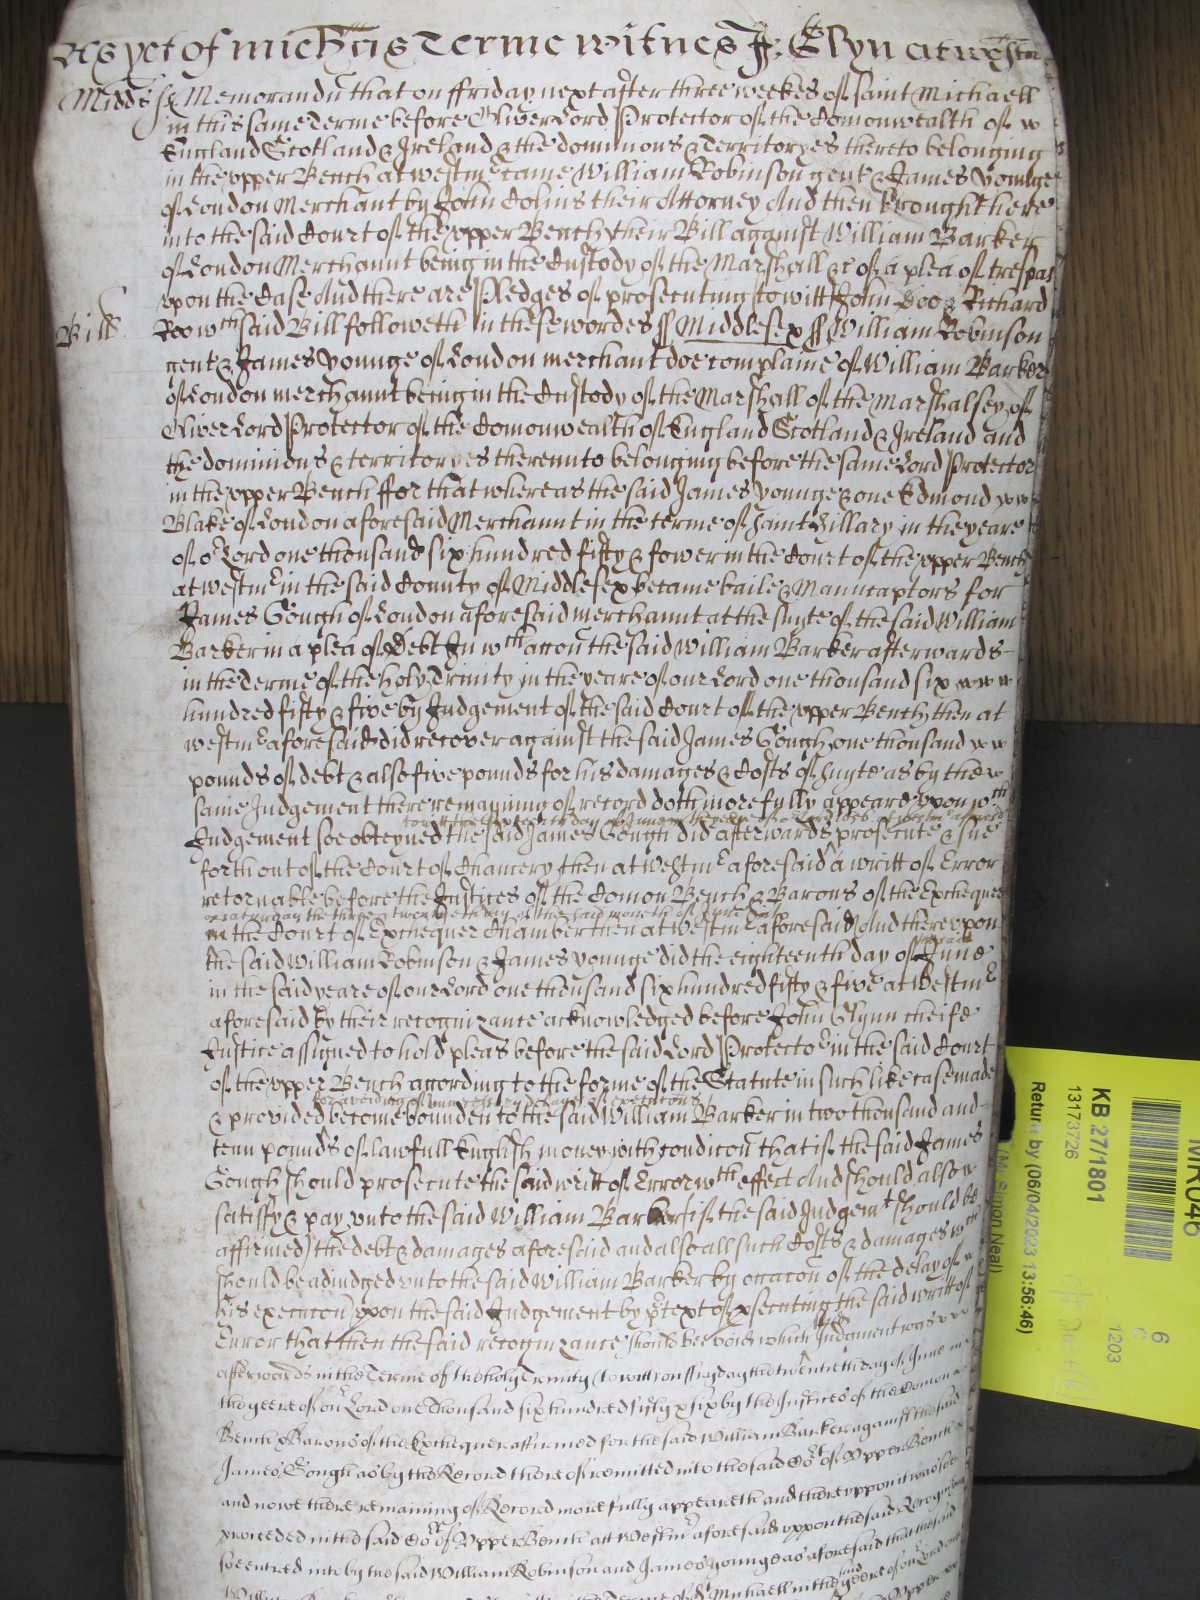 As yet of Michis Terme Witnes J: Glyn at Westm
Midds ss Memorandu that on ffriday next after three weekes of saint Michaell
in this same Terme before Oliver Lord Protector of the Comonwealth of
England Scotland & Ireland & the dominions & Territoryes thereto belonging
in the upper Bench at westmr came William Robinson gent & James Younge
of London Merchant by John Colins their Attorney And then brought here
into the said Court of the upper Bench their Bill against William Barker
of London Merchannt being in the Custody of the Marshall &c of a plea of trespas
upon the Case And there are Pledges of prosecuting to witt John Doo & Richard
Bill Roo wch said Bill followeth in these wordes ss Middlesex ss William Robinson
gent & James Younge of London merchant doe complaine of William Barker
of London merchannt being in the Custody of the Marshall of the Marshalsey of
Oliver Lord Protector of the Comonwealth of England Scotland & Ireland and
the dominions & territoryes thereunto belonging before the same Lord Protector
in the upper Bench ffor that whereas the said James Younge & one Edmond
Blake of London aforesaid Merchannt in the terme of Saint Hillary in the yeare
of or Lord one thousand six hundred fifty & fower in the Court of the upper Bench
at westmr in the said County of Middlesex became baile & Manucaptors for
James Gough of London aforesaid merchannt at the suyte of the said William
Barker in a plea of Debt In wch accon the said William Barker afterwards
in the Terme of the Holy Trinity in the yeare of our Lord one thousand six
hundred fifty & five by Judgement of the said Court of the upper Bench then at
westmr aforesaid did recover against the said James Gough one thousand
pounds of debt & also five pounds for his damages & Costs of suyte as by the
same Judgement there remayning of record doth more fully appeare upon wch
to witt the day of June in the yeare of or Lord 1655 at westmr aforesd
Judgement soe obteyned the said James Gough did afterwards prosecute & sue
forth out of the Court of Chancery then at Westmr aforesaid a writt of Error
retornable before the Justices of the Comon Bench & Barons of the Exchequer
on saturday the three & twentieth day of the said moneth of June
in the Court of Exchequer Chamber then at Westmr aforesaid And thereupon
the said William Robinson & James Younge did the eighteenth day of June
in the said yeare of our Lord one thousand six hundred fifty & five at Westmr
aforesaid by their recognizance acknowledged before John Glynn cheife
Justice assigned to hold pleas before the said Lord Protector in the said Court
of the upper Bench according to the forme of the Statute in such like case made
for avoiding of unnecessary delayes of execucons
& provided become bounden to the said William Barker in two thousand and
tenn pounds of lawfull English money with condicon that if the said James
Gough should prosecute the said writt of Error wth effect And should also
satisfy & pay unto the said William Barker (if the said Judgemt should be
affirmed) the debt & damages aforesaid and also all such Costs & damages wch
should be adiudged unto the said William Barker by occacon of the delay of
his execucon upon the said Judgement by prtext of psecuting the said writt of
Error that then the said recognizance should bee void which Judgment was
afterwards in the Terme of the holy Trinity (to witt) on ffryday the twentieth day of June in
the yeere of our Lord one Thousand six hundred fifty & six by the Justices of the Comon
Bench & Barons of the Exchequer affirmed for the said William Barker against the said
James Gough as by the Record thereof remitted into the said Cort of Upper Bench
and nowe there remaining of Record more fully appeareth and thereuppon it was soe
proceeded in the said Cort of Upper Bench att Westmr aforesaid uppon the said Recognizance
soe entred into by the said William Robinson and James Younge as aforesaid that the said
MR046
6
C
1203
KB 27/1801
13173726
Return by (06/04/2023 13:56:46)
(Mr Simon Neal)